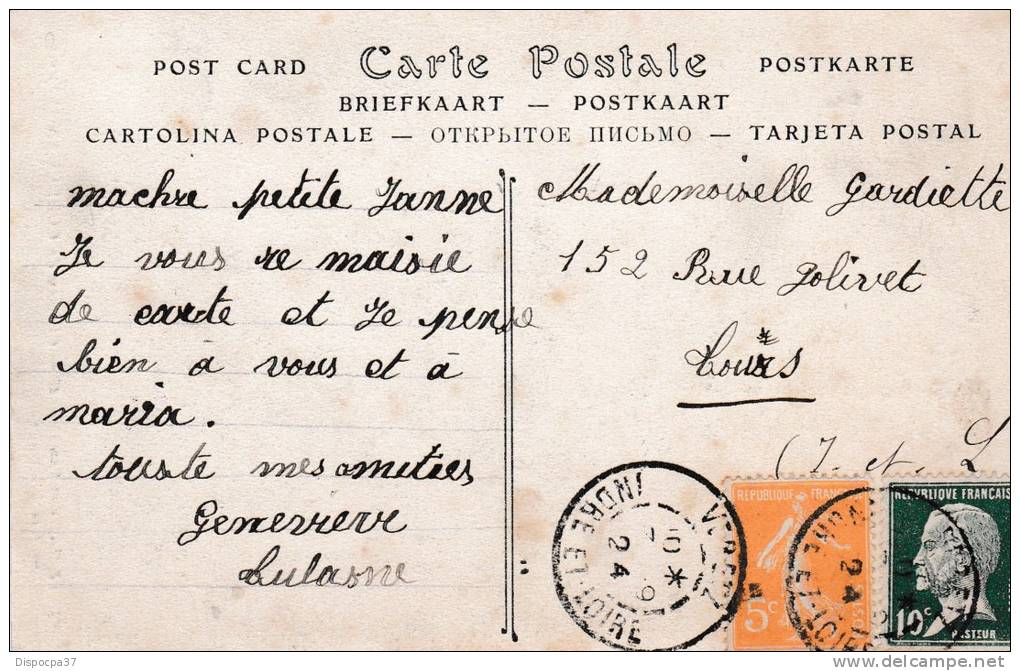 POST CARD Carte Postale POSTKARTE
BRIEFKAART — POSTKAART
CARTOLINA POSTALE — ОТКРЫТОЕ ПИСЬМО — TARJETA POSTAL
machre petite Janne
Je vous re maisie
de carte et Je pense
bien à vous et à
maria.
touste mes amities
Genevieve
Mademoiselle Gardiette
152 Rue Jolivet
Tours
(I. et. L
VERETZ
10 - 9
24
INDRE ET-LOIRE
REPUBLIQUE FRANÇAISE
5c
POSTES
REPUBLIQUE FRANÇAIS
10c
PASTEUR
24
INDRE ET-LOIRE
Dispocpa37
delcampe.net